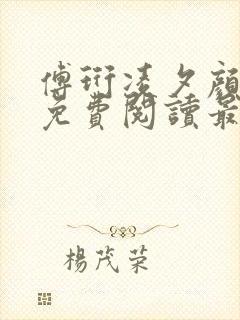 傅衍凌夕顏
免費閱讀最
楊茂荣